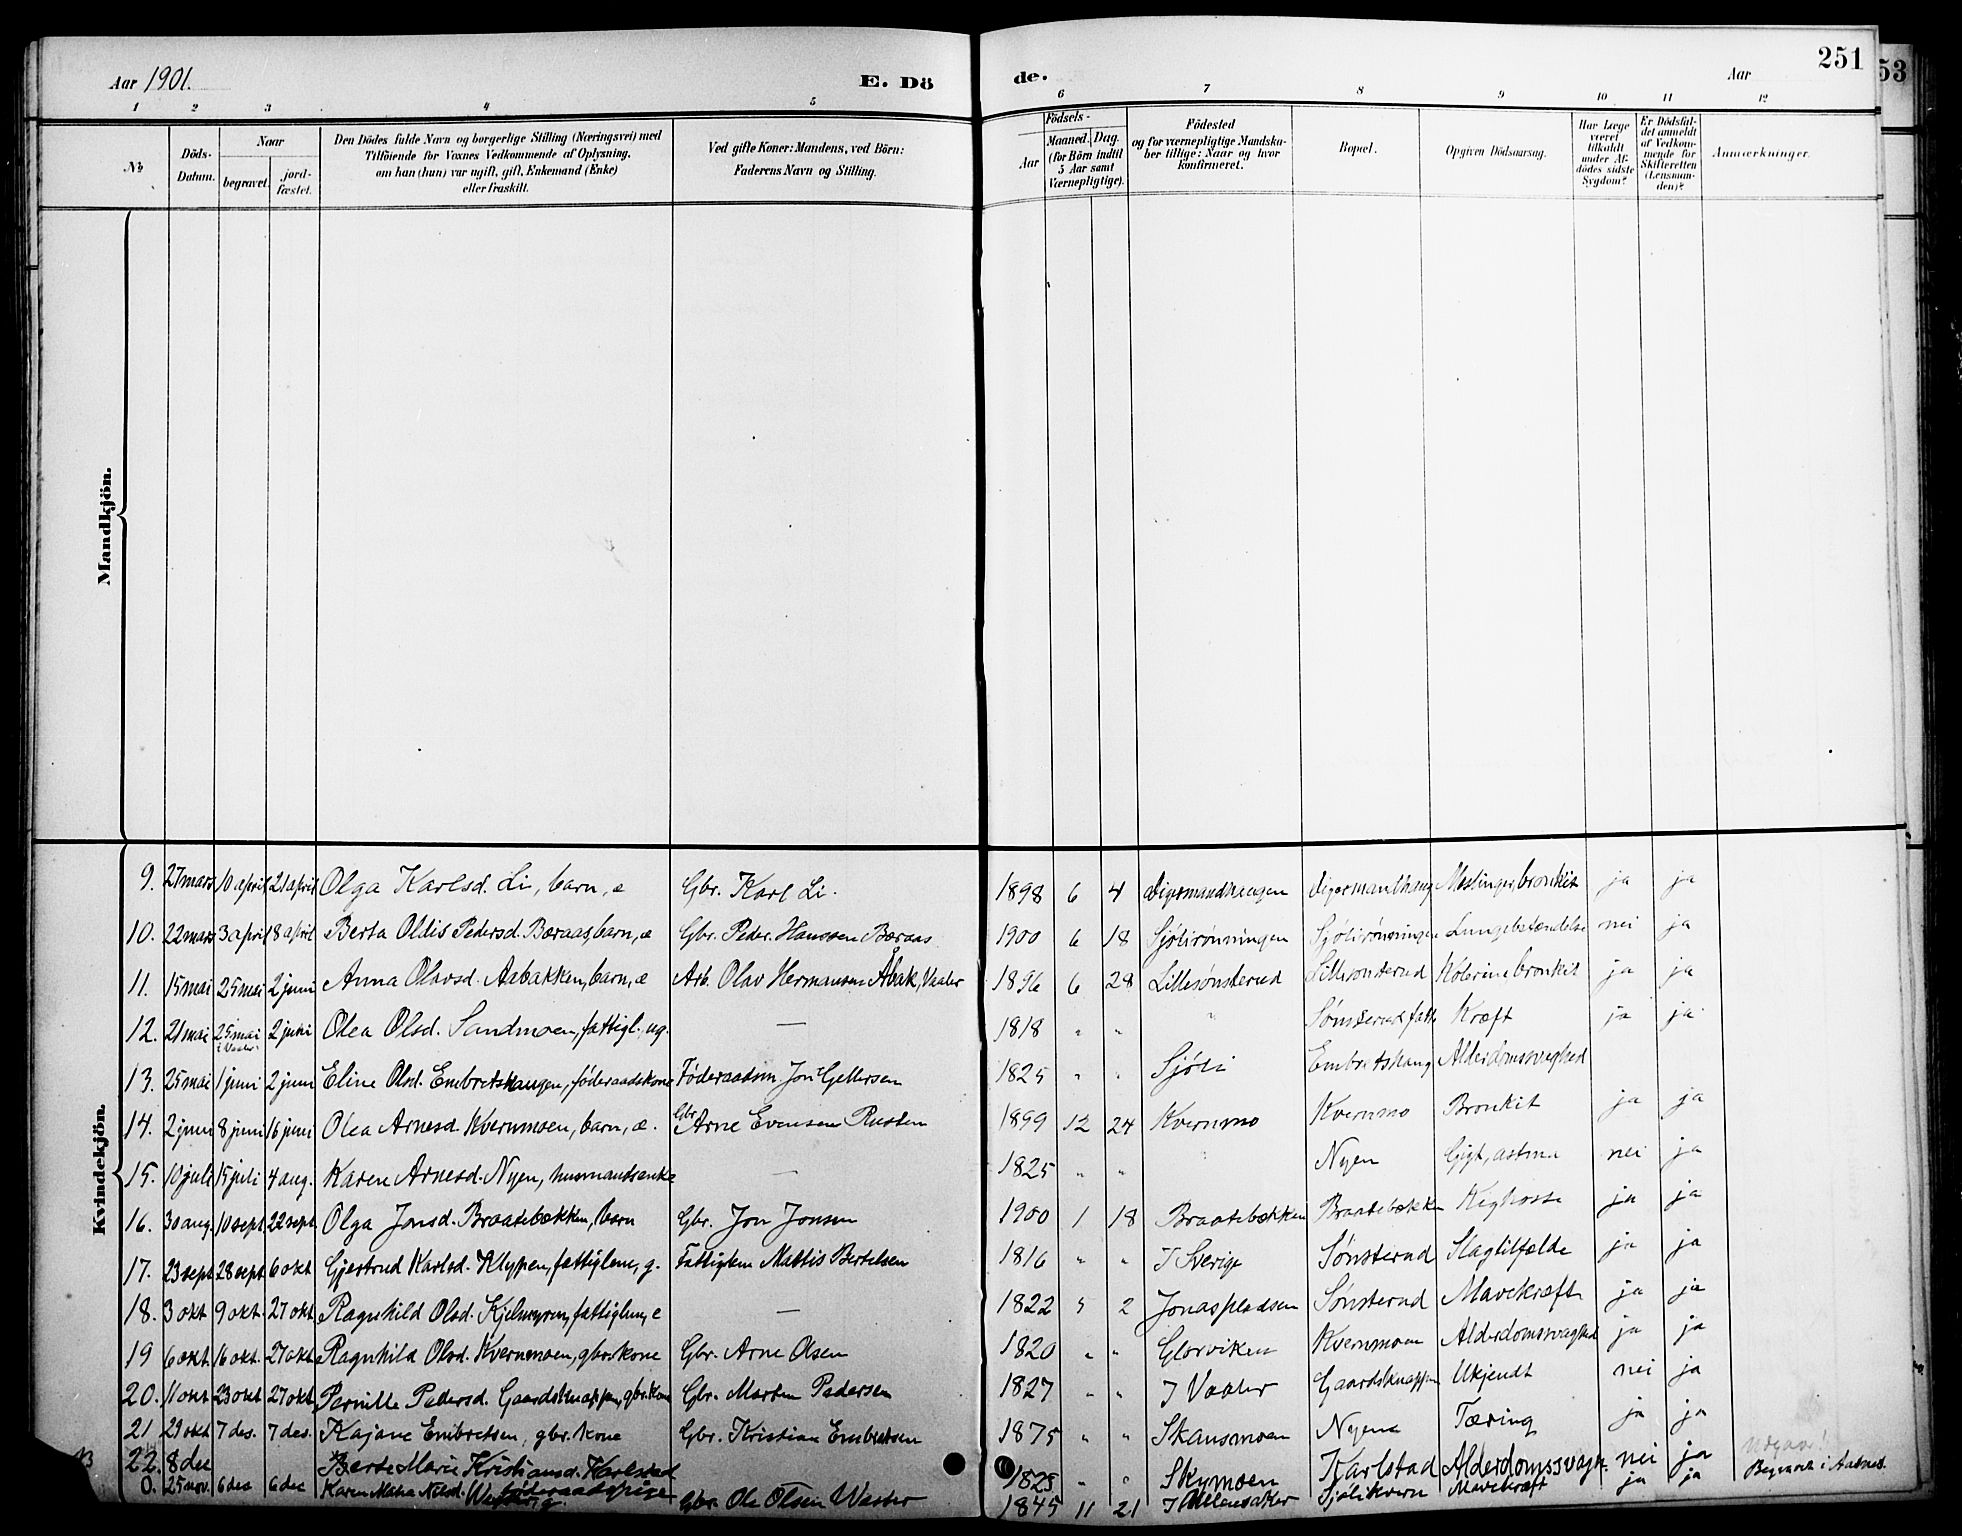 Aar 1901.
E. Dö
de.
Aar
251
53
1 2 3 4 5 6 7 8 9 10 11 12
No
Döds-
Datum.
Naar
begravet.
jord-
fæstet.
Den Dödes fulde Navn og borgerlige Stilling (Næringsvei) med
Tilföiende for Voxnes Vedkommende af Oplysning,
om han (hun) var ugift, gift, Enkemand (Enke)
eller fraskilt.
Ved gifte Koner: Mandens, ved Börn:
Faderens Navn og Stilling.
Födsels-
Aar
Maaned. Dag.
(for Börn indtil
5 Aar samt
Værnepligtige).
Födested
og for værnepligtige Mandska-
ber tillige: Naar og hvor
konfirmeret.
Bopæl.
Opgiven Dödsaarsag.
Har Læge
været
tilkaldt
under Af-
dödes sidste
Sygdom?
Er Dödsfal-
det anmeldt
af Vedkom-
mende for
Skifteretten
(Lensman-
den)?
Anmærkninger.
Mandkjön.
Kvindekjön.
9. 27 mars 10 april 21 april Olga Karlsd. Li, barn, e Gbr. Karl Li. 1898 6 4 Digermandhaugen Digermanthaug Meslinger, bronkit ja ja
10. 22 mars 3 april 8 april Berta Oldis Pedersd. Bæraas, barn, æ Gbr. Peder Hanssen Bæraas 1900 6 18 Sjølirønningen Sjølirønningen Lungebetændelse nei ja
11. 15 mai 25 mai 2 juni Anna Olavsd. Aabakken, barn, æ Arb. Olav Hermansen Åbak, Vaaler 1896 6 28 Lillesønsterud Lillesønsterud bronkit ja ja
12. 21 mai 25 mai i Vaaler 2 juni Olea Olsd. Sandmoen, fattigl., ug. — 1818 " " " Sønsterud fatt. Kræft ja ja
13. 25 mai 1 juni 2 juni Eline Olsd. Embretshaugen, føderaadskone Føderaadsm. Jon Gettersen 1825 " " Sjøli Embretshaug Alderdomssvaghed
14. 2 juni 8 juni 16 juni Olea Arnesd. Kvernmoen, barn, æ. Gbr. Arne Evensen Rusten 1899 12 24 Kvernmo Kvernmo Bronkit ja ja
15. 10 juli 15 juli 4 aug. Karen Arnesd. Nyen, husmandsenke — 1825 " " " Nyen Gigt, astma nei ja
16. 30 aug. 10 sept. 22 sept. Olga Jonsd. Braatebækken, barn Gbr. Jon Jonsen 1900 1 18 Braatebækken Braatebækken Kighoste ja ja
17. 23 sept 28 sept 6 okt Gjertrud Karlsd. Klyppen, fattiglem, g. Fattiglem Mattis Bertelsen 1816 " " I Sverige Sønsterud Slagtilfælde ja ja
18. 3 okt 9 okt 27 okt Ragnhild Olsd. Kjelmyren, fattiglem, e — 1822 5 2 Jonaspladsen Sønsterud Mavekræft ja ja
19 6 okt. 16 okt. 27 okt Ragnhild Olsd. Kvernmoen, gbr.kone Gbr. Arne Olsen 1820 " " Glorviken Kvernmoen Alderdomssvaghed ja ja
20. 11 okt 23 okt 27 okt Pernille Pedersd. Gaardsknappen, gbr.kone Gbr. Morten Pedersen 1827 " " I Vaaler Gaardsknappen Ukjendt nei ja
21 29 okt 7 des. 7 des. Kajane Embretsen, gbr. kone Gbr. Kristian Embretsen 1875 " " Skansmoen Nyen Tæring ja ja
22. 8 dec Berte Marie Kristiansd. Karlstad føderaadspige 1823 " " Skymoen Karlstad Alderdomssvagh. nei ja Udgaar! Begravet i Aasnes.
0. 25 nov. 6 dec 6 dec Karen Nilsd. Gbr. Ole Olsen Wester 1845 11 21 I Ullensaker Sjølikvern Mavekræft ja ja